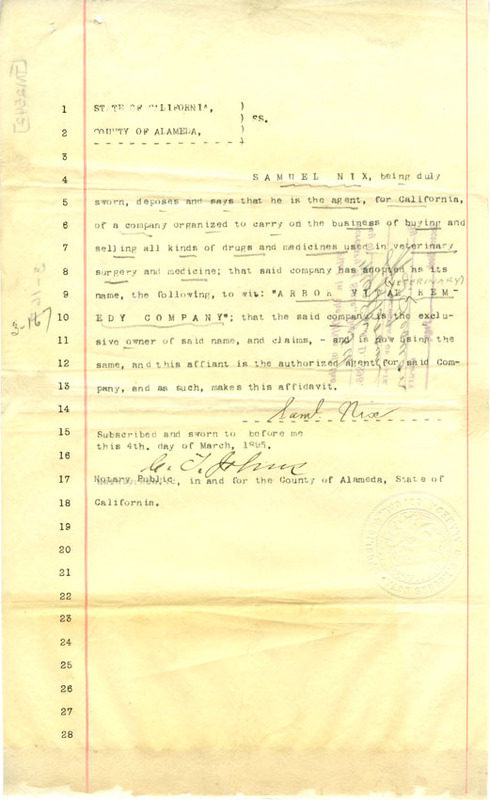 1 STATE OF CALIFORNIA, )
) SS.
2 COUNTY OF ALAMEDA, )
3
4 SAMUEL NIX, being duly
5 sworn, deposes and says that he is the agent, for California,
6 of a company organized to carry on the business of buying and
7 selling all kinds of drugs and medicines used in veterinary
8 surgery and medicine; that said company has adopted as its
(VETERINARY)
9 name, the following, to wit: "ARBOR VITAE REM-
10 EDY COMPANY"; that the said company is the exclu-
11 sive owner of said name, and claims, - and is now using the
12 same, and this affiant is the authorized agent for said Com-
13 pany, and as such, makes this affidavit.
14 Saml. Nix
15 Subscribed and sworn to before me
this 4th. day of March, 1895.
16 C. T. Johns
17 Notary Public, in and for the County of Alameda, State of
18 California.
19
20
21
22
23
24
25
26
27
28